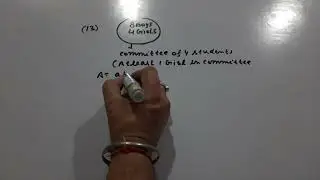 (12) 8 Boys
4 Girls
committee of 4 students
(Atleast 1 Girl in committee
A= at